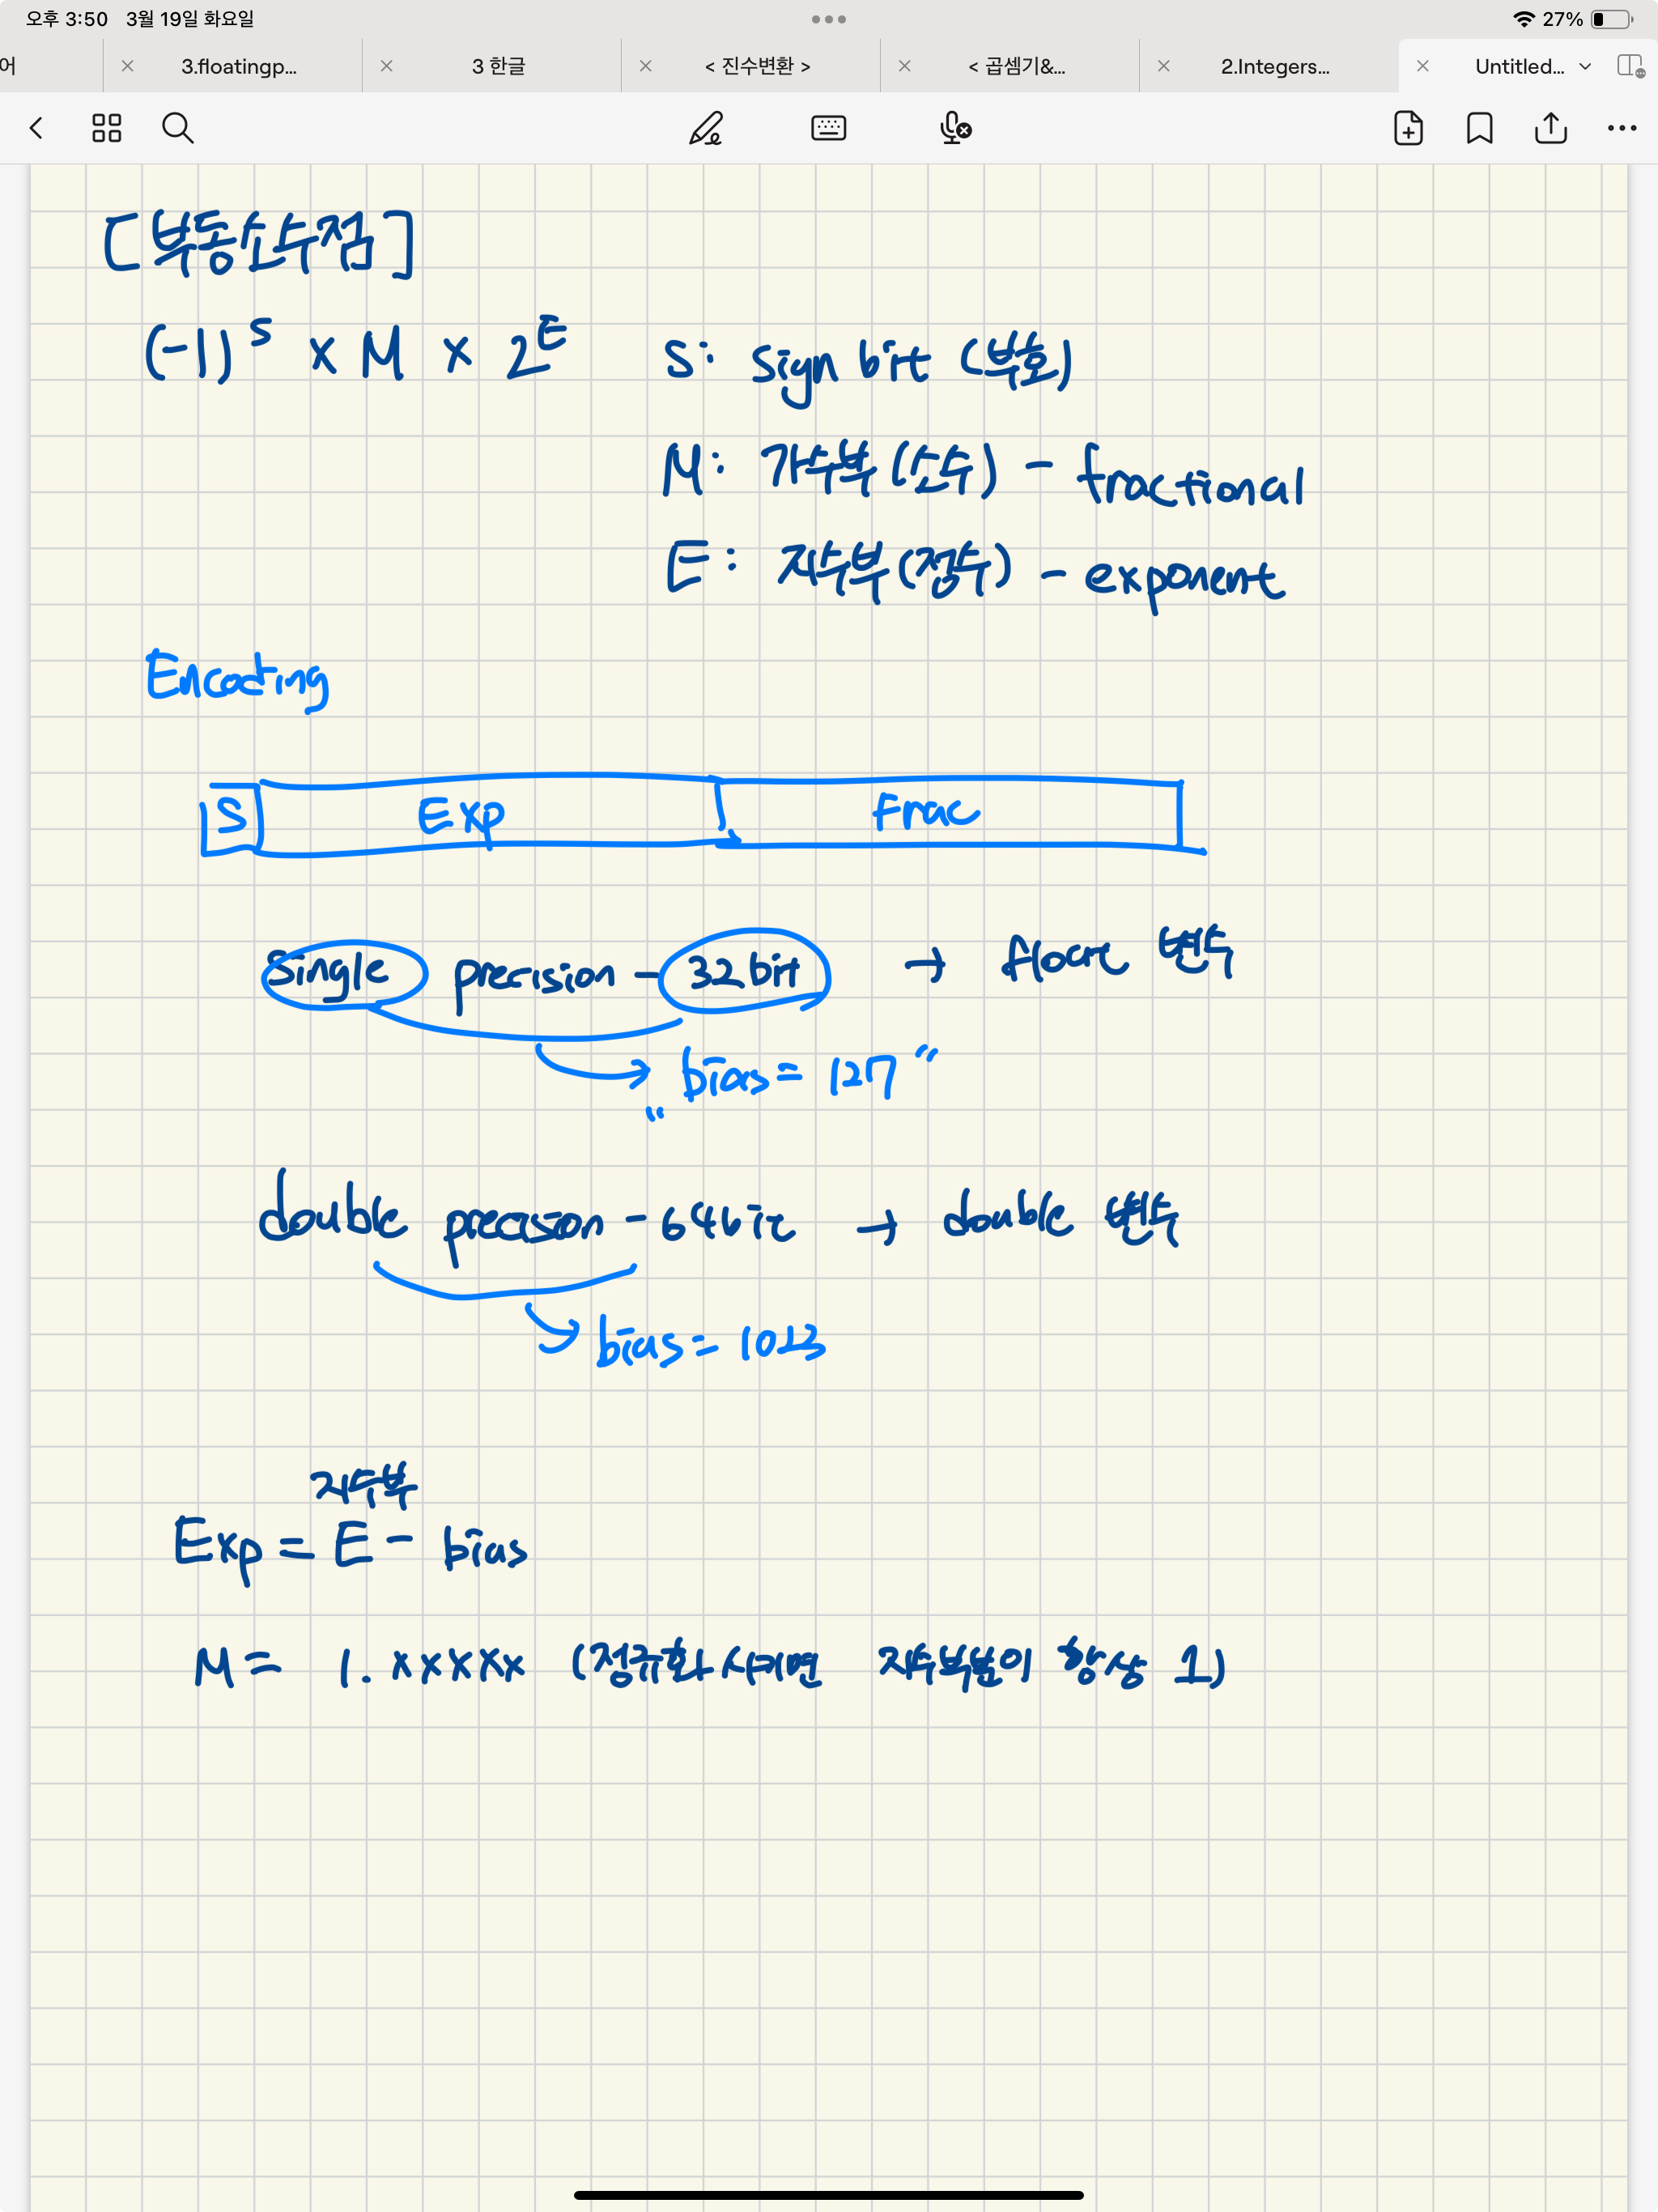 오후 3:50 3월 19일 화요일
27%
어
3.floatingp...
3 한글
< 진수변환 >
< 곱셈기&...
2.Integers...
Untitled...
[부동소수점]
(-1)^S × M × 2^E
S: sign bit (부호)
M: 가수부 (소수) - fractional
E: 지수부 (정수) - exponent
Encoding
S Exp Frac
single precision - 32bit → float 변수
"bias = 127"
double precision - 64bit → double 변수
bias = 1023
지수부
Exp = E - bias
M = 1.xxxxx (정규화 시키면 지수부분이 항상 1)